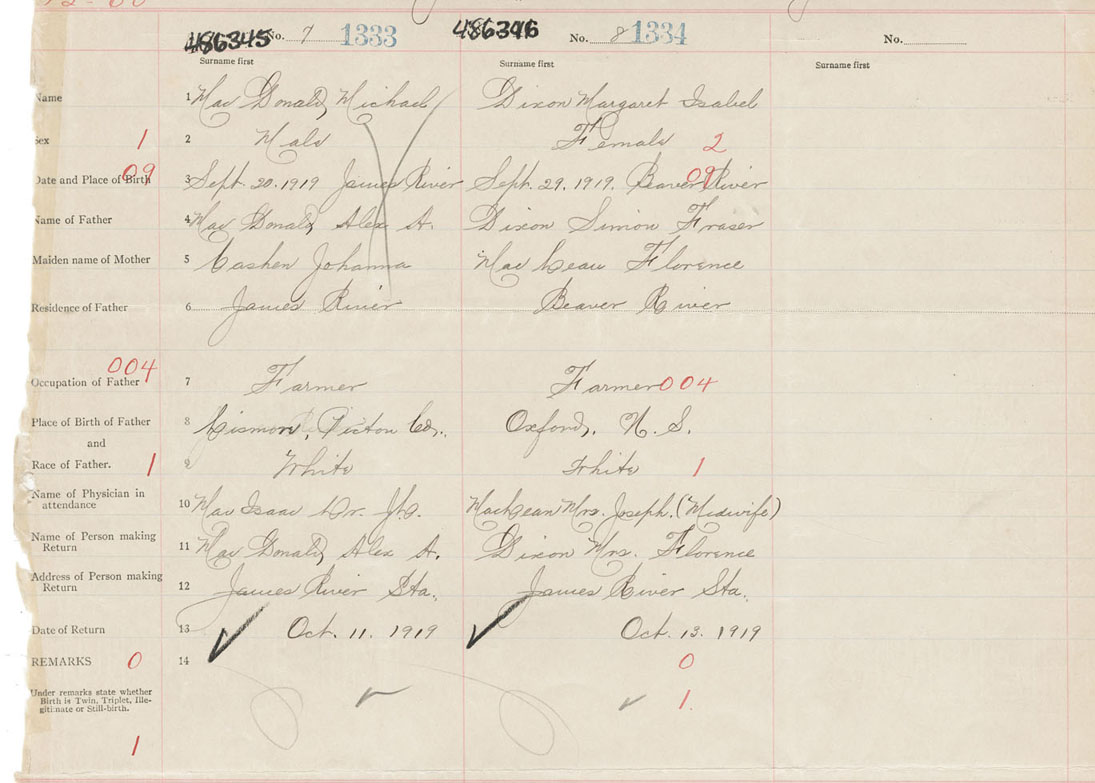 486345 No. 7 1333 486346 No. 8 1334 No.
Surname first Surname first Surname first
Name 1 Mac Donald, Michael Dixon Margaret Isabel
Sex 1 2 Male Female 2
Date and Place of Birth 09 3 Sept. 20. 1919 James River Sept. 29. 1919. Beaver River 09
Name of Father 4 Mac Donald, Alex A. Dixon Simon Fraser
Maiden name of Mother 5 Cashen Johanna Mac Lean Florence
Residence of Father 6 James River Beaver River
004
Occupation of Father 7 Farmer Farmer 004
Place of Birth of Father 8 Lismore, Pictou Co. Oxford, N. S.
and
Race of Father. 1 9 White White 1
Name of Physician in
attendance 10 Mac Isaac Dr. MacLean Mrs. Joseph. (Midwife)
Name of Person making
Return 11 Mac Donald, Alex A. Dixon Mrs. Florence
Address of Person making
Return 12 James River Sta. James River Sta.
Date of Return 13 Oct. 11. 1919 Oct. 13. 1919
REMARKS 0 14 0
Under remarks state whether
Birth is Twin, Triplet, Ille-
gitimate or Still-birth. 1
1